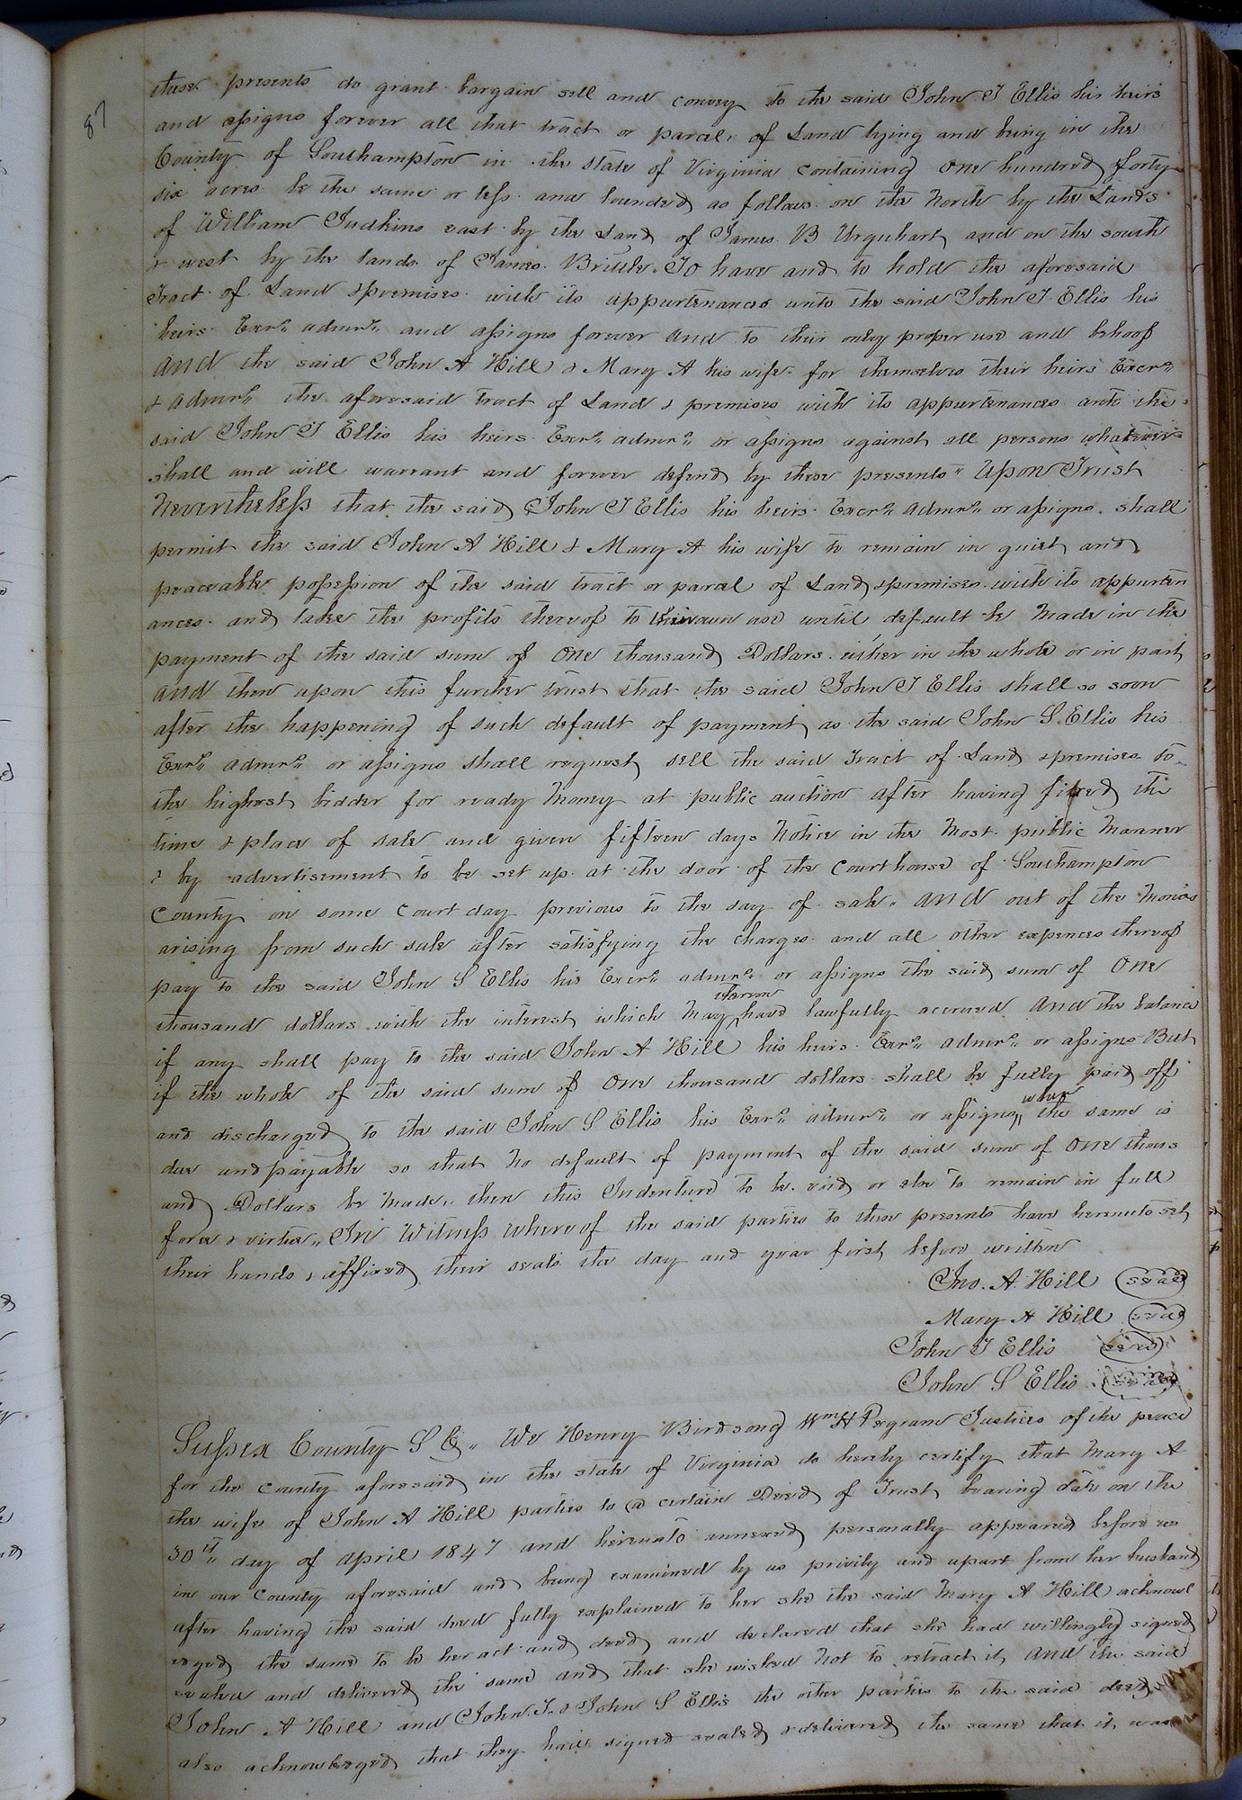 87
these presents do grant bargain sell and convey to the said John T Ellis his heirs
and assigns forever all that tract or parcel of Land lying and being in the
County of Southampton in the state of Virginia containing one hundred forty
six acres be the same or less and bounded as follows on the North by the Lands
of William Judkins east by the Land of James B Urquhart and on the south
& west by the lands of James Britile To have and to hold the aforesaid
Tract of Land & premises with its appurtenances unto the said John T Ellis his
heirs Exrs admrs and assigns forever and to their only proper use and behoof
and the said John A Hill & Mary A his wife for themselves their heirs Exors
& admrs the aforesaid tract of Land & premises with its appurtenances unto the
said John T Ellis his heirs Exrs admrs or assigns against all persons whatever
shall and will warrant and forever defend by these presents Upon Trust
Nevertheless that the said John T Ellis his heirs Exors admrs or assigns shall
permit the said John A Hill & Mary A his wife to remain in quiet and
peaceable possession of the said tract or parcel of Land & premises with its appurten
ances and take the profits thereof to their own use until default be made in the
payment of the said sum of one thousand Dollars either in the whole or in part
and then upon this further trust that the said John T Ellis shall so soon
after the happening of such default of payment as the said John S. Ellis his
Exrs admrs or assigns shall request sell the said Tract of Land & premises to
the highest bidder for ready money at public auction after having fixed the
time & place of sale and given fifteen days Notice in the most public manner
& by advertisement to be set up at the door of the Courthouse of Southampton
County on some Court day previous to the day of sale and out of the monies
arising from such sale after satisfying the charges and all other expences thereof
pay to the said John S Ellis his Exrs admrs or assigns the said sum of one
thousand dollars with the interest which may thereon have lawfully accrued and the balance
if any shall pay to the said John A Hill his heirs Exrs admrs or assigns But
if the whole of the said sum of one thousand dollars shall be fully paid off
and discharged to the said John S Ellis his Exrs admrs or assigns when the same is
due and payable so that no default of payment of the said sum of one thous
and Dollars be made, then this Indenture to be void or else to remain in full
force & virtue, In Witness whereof the said parties to these presents have hereunto set
their hands & affixed their seals the day and year first before written
Jno. A. Hill (seal)
Mary A Hill (seal)
John T Ellis (seal)
John S Ellis (seal)
Sussex County S C, We Henry Birdsong Wm H Pegram Justices of the peace
for the County aforesaid in the state of Virginia do hereby certify that Mary A
the wife of John A Hill parties to a certain Deed of Trust bearing date on the
30th day of April 1847 and hereunto annexed personally appeared before us
in our County aforesaid and being examined by us privily and apart from her husband
after having the said deed fully explained to her she the said Mary A Hill acknowl
eged the same to be her act and deed and declared that she had willingly signed
sealed and delivered the same and that she wished not to retract it, and the said
John A Hill and John T. & John S Ellis the other parties to the said deed
also acknowleged that they had signed sealed & delivered the same that it was